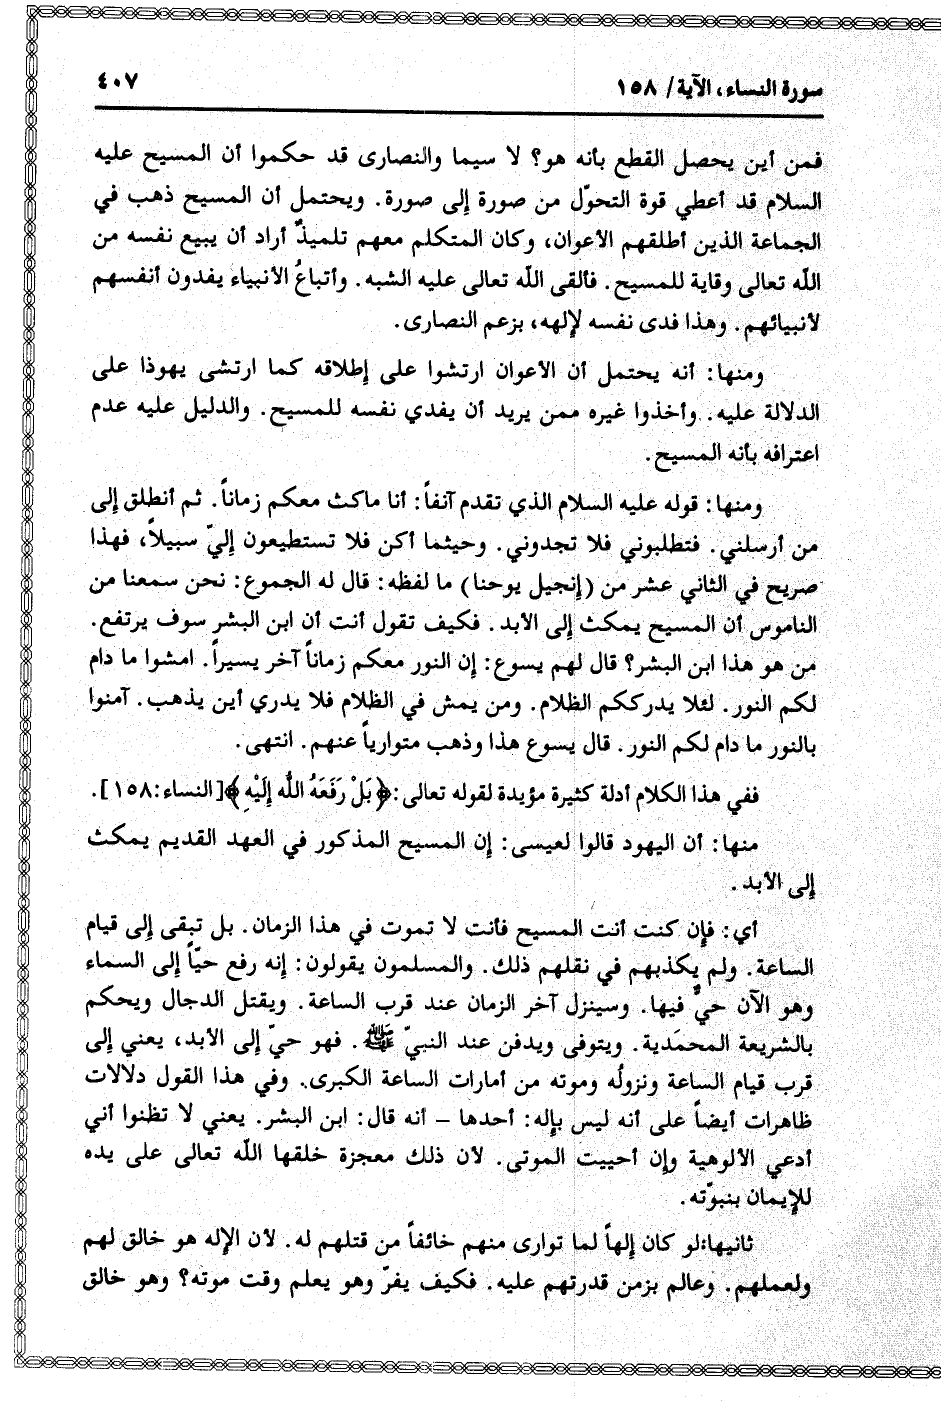 سورة النساء، الآية/ ١٥٨
٤٠٧
فمن أين يحصل القطع بأنه هو؟ لا سيما والنصارى قد حكموا أن المسيح عليه
السلام قد أعطي قوة التحوّل من صورة إلى صورة. ويحتمل أن المسيح ذهب في
الجماعة الذين أطلقهم الأعوان، وكان المتكلم معهم تلميذٌ أراد أن يبيع نفسه من
الله تعالى وقاية للمسيح. فألقى الله تعالى عليه الشبه. وأتباعُ الأنبياء يفدون أنفسهم
لأنبيائهم. وهذا فدى نفسه لإلهه، بزعم النصارى.
ومنها: أنه يحتمل أن الأعوان ارتشوا على إطلاقه كما ارتشى يهوذا على
الدلالة عليه. وأخذوا غيره ممن يريد أن يفدي نفسه للمسيح. والدليل عليه عدم
اعترافه بأنه المسيح.
ومنها: قوله عليه السلام الذي تقدم آنفاً: أنا ماكث معكم زماناً. ثم أنطلق إلى
من أرسلني. فتطلبوني فلا تجدوني. وحيثما أكن فلا تستطيعون إليّ سبيلاً، فهذا
صريح في الثاني عشر من (إنجيل يوحنا) ما لفظه: قال له الجموع: نحن سمعنا من
الناموس أن المسيح يمكث إلى الأبد. فكيف تقول أنت أن ابن البشر سوف يرتفع.
من هو هذا ابن البشر؟ قال لهم يسوع: إن النور معكم زماناً آخر يسيراً. امشوا ما دام
لكم النور. لئلا يدرككم الظلام. ومن يمش في الظلام فلا يدري أين يذهب. آمنوا
بالنور ما دام لكم النور. قال يسوع هذا وذهب متوارياً عنهم. انتهى.
ففي هذا الكلام أدلة كثيرة مؤيدة لقوله تعالى:﴿بَلْ رَفَعَهُ اللهُ إِلَيْهِ﴾[النساء:١٥٨].
منها: أن اليهود قالوا لعيسى: إن المسيح المذكور في العهد القديم يمكث
إلى الأبد.
أي: فإن كنت أنت المسيح فأنت لا تموت في هذا الزمان. بل تبقى إلى قيام
الساعة. ولم يكذبهم في نقلهم ذلك. والمسلمون يقولون: إنه رفع حيّاً إلى السماء
وهو الآن حيٌّ فيها. وسينزل آخر الزمان عند قرب الساعة. ويقتل الدجال ويحكم
بالشريعة المحمَدية. ويتوفى ويدفن عند النبيّ ﷺ. فهو حيّ إلى الأبد، يعني إلى
قرب قيام الساعة ونزولُه وموته من أمارات الساعة الكبرى. وفي هذا القول دلالات
ظاهرات أيضاً على أنه ليس بإله: أحدها – أنه قال: ابن البشر. يعني لا تظنوا أني
أدعي الألوهية وإن أحييت الموتى. لأن ذلك معجزة خلقها الله تعالى على يده
للإيمان بنبوّته.
ثانيها:لو كان إلهاً لما توارى منهم خائفاً من قتلهم له. لأن الإله هو خالق لهم
ولعملهم. وعالم بزمن قدرتهم عليه. فكيف يفرّ وهو يعلم وقت موته؟ وهو خالق